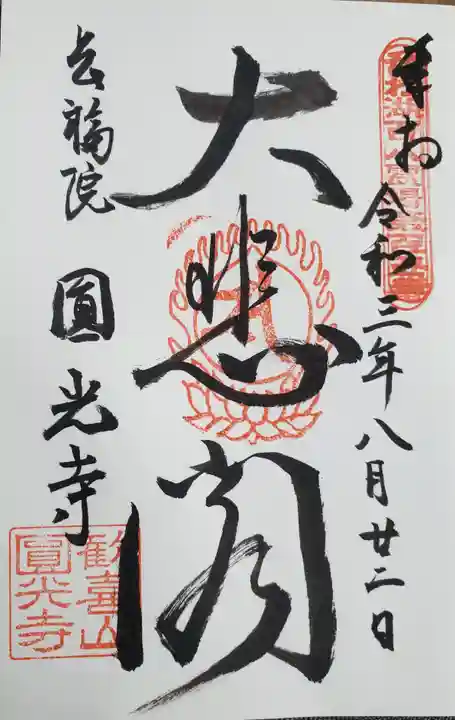 奉拝
令和三年八月廿二日
大悲閣
福院 圓光寺
歡喜山
圓光寺